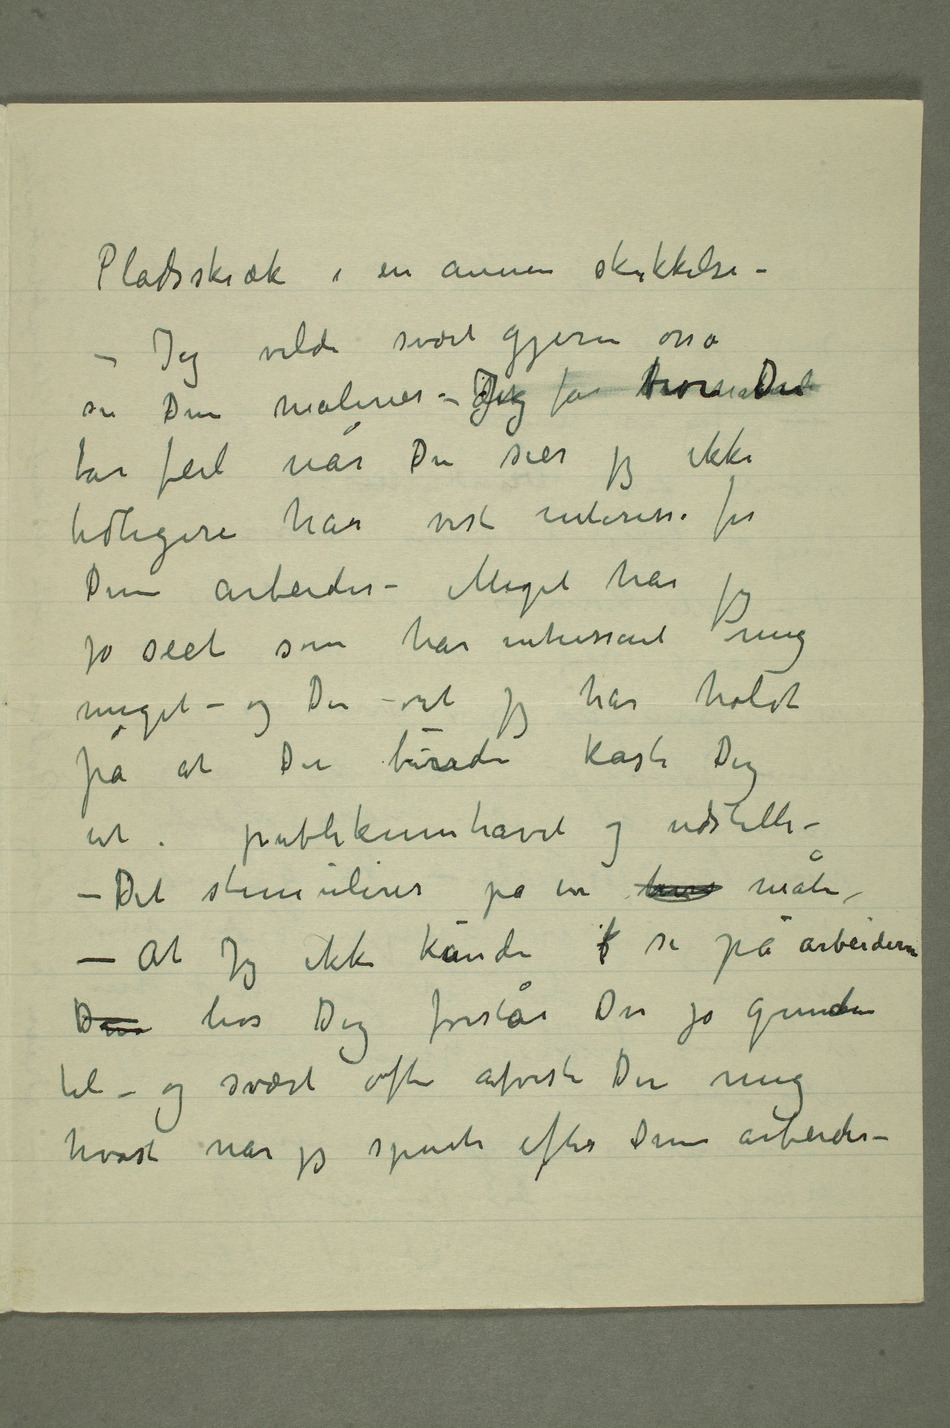 Pladsskræk i en annen skikkelse –
– Jeg vilde svært gjerne osså
se Dine malerier – Jeg tror Du
tar feil når Du sier jeg ikke
tidligere har vist interesse for
Dine arbeider – Meget har jeg
jo seet som har interessert mig
meget – og Du vet jeg har holdt
på at Du burde kaste Dig
ut i publikumhavet og udstille –
– Det stimulerer på en måte –
– At Jeg ikke kunde se på arbeiderne
hos Dig forstår Du jo grunden
til – og svært ofte afviste Du mig
hvast når jeg spurte efter Dine arbeider –